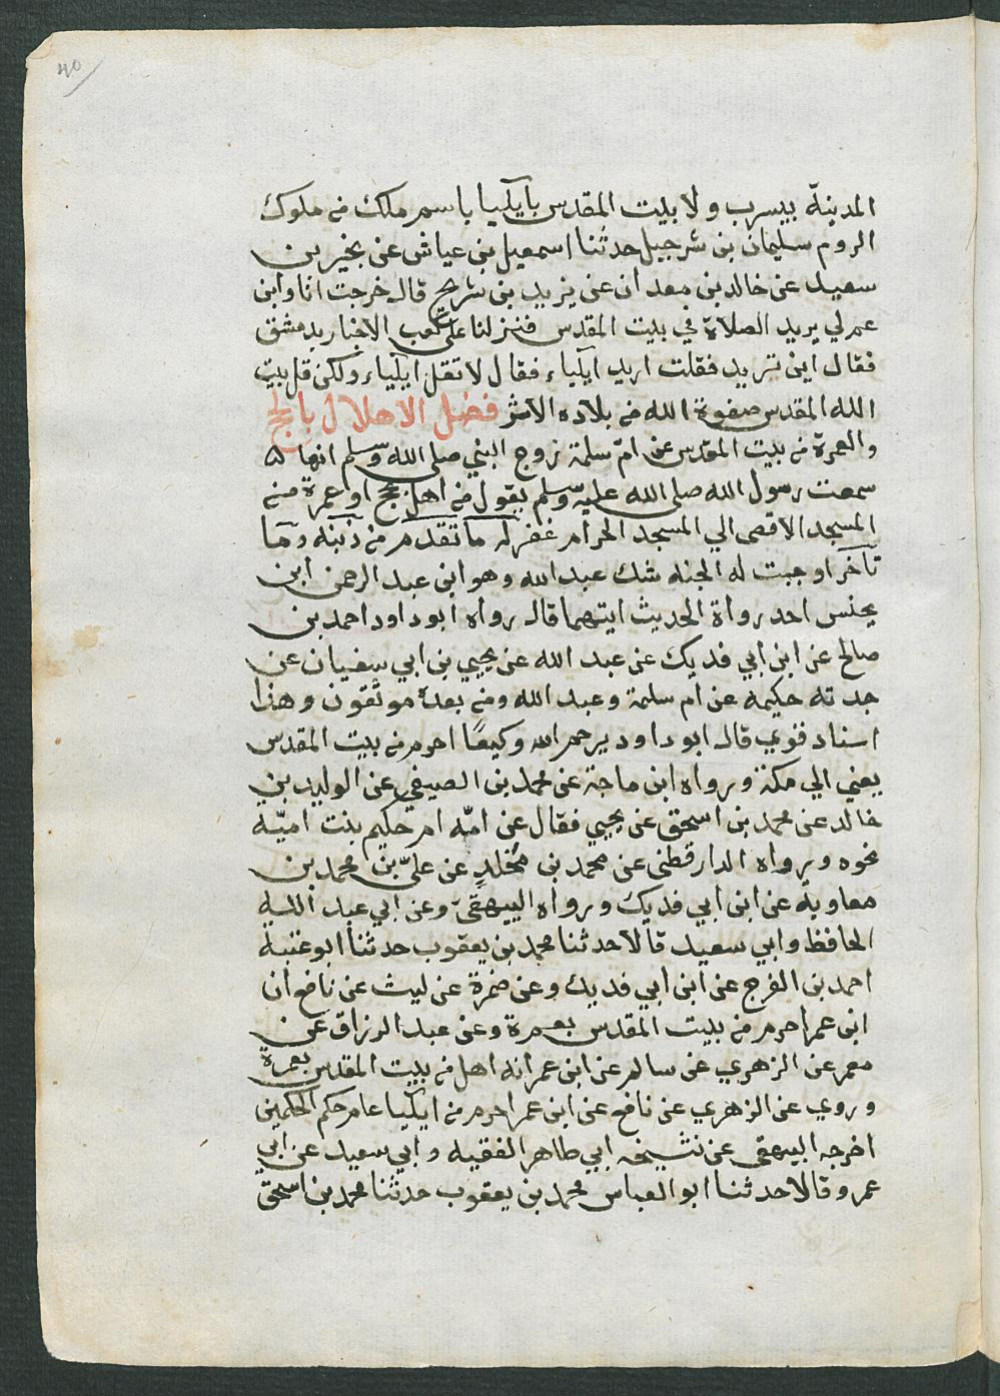 40
المدينة بيسرب ولا بيت المقدس بايليا باسم ملك من ملوك
الروم سليمان بن شرجبيل حدثنا اسمعيل بن عياش عن بخير بن
سعيد عن خالد بن معدان عن يزيد بن شريح قال خرجت انا وابن
عم لي يريد الصلاة في بيت المقدس فنزلنا على كعب الاخبار بدمشق
فقال اين تريد فقلت اريد ايلياء فقال لا تقل ايلياء ولكن قل بيت
الله المقدس صفوة الله من بلاده الاثر فضل الاهلال بالحج
والعمرة من بيت المقدس عن امّ سلمة زوج النبي صلى الله وسلم انها
سمعت رسول الله صلى الله عليه وسلم يقول من اهل بحج او عمرة من
المسجد الاقصى الي المسجد الحرام غفر له ما تقدم من ذنبه وما
تآخر او جبت له الجنه شك عبد الله وهو ابن عبد الرحمن ابن
يحنس احد رواة الحديث ايتهما قال رواه ابو داود احمد بن
صالح عن ابن ابي فديك عن عبد الله عن يحيي بن ابي سفيان عن
جدته حكيمه عن ام سلمة وعبد الله ومن بعده موثقون وهذا
اسناد قوي قال ابو داود يرحم الله وكيعًا احرم من بيت المقدس
يعني الي مكة ورواه ابن ماجة عن محمد بن الصيفي عن الوليد بن
خالد عن محمد بن اسحق عن يحيي فقال عن امّه ام حكيم بنت اميّه
نحوه ورواه الدارقطنى عن محمد بن مخلدٍ عن عليّ بن محمد بن
معاوية عن ابن ابي فديك ورواه البيهقى وعن ابي عبد الله
الحافظ وابي سعيد قالا حدثنا محمد بن يعقوب حدثنا ابو عتبة
احمد بن الفرج عن ابن ابي فديك وعن ضمرة عن ليث عن نافع ان
ابن عمر احرم من بيت المقدس بعمرة وعن عبد الرزاق عن
معمر عن الزهري عن سالم عن ابن عمر انه اهل من بيت المقدس بعمرة
وروي عن الزهري عن نافع عن ابن عمر احرم من ايليا عام حكم الحكمين
اخرجه البيهقى عن شيخه ابي طاهر الفقيه وابي سعيد عن ابي
عمرو قالا حدثنا ابو العباس محمد بن يعقوب حدثنا محمد بن اسحق